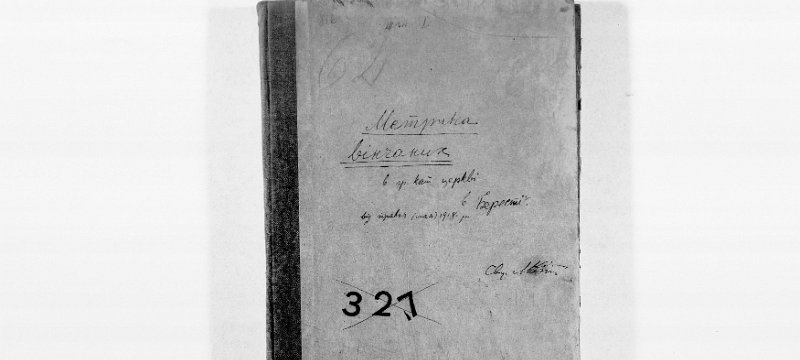 62
Метрика
вінчаних
в гр. кат. церкві
в Берест
від травня (мая) 1918. р.
321